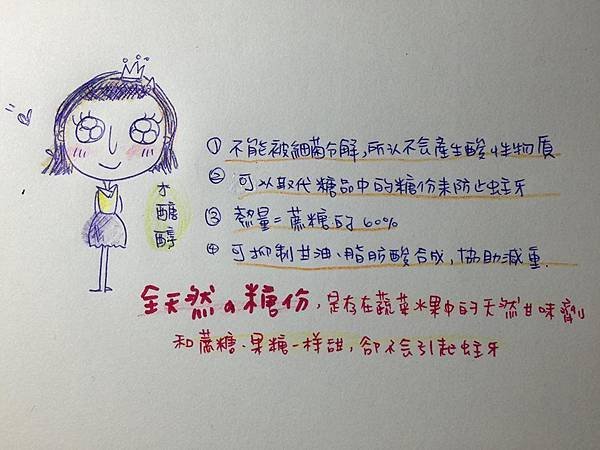 木
醣
醇
① 不能被細菌分解,所以不會產生酸性物質
② 可以取代糖品中的糖份来防止蛀牙
③ 熱量=蔗糖的60%
④ 可抑制甘油、脂肪酸合成,協助減重.
全天然の糖份,是存在蔬菜水果中的天然甘味劑
和蔗糖、果糖一样甜,卻不会引起蛀牙